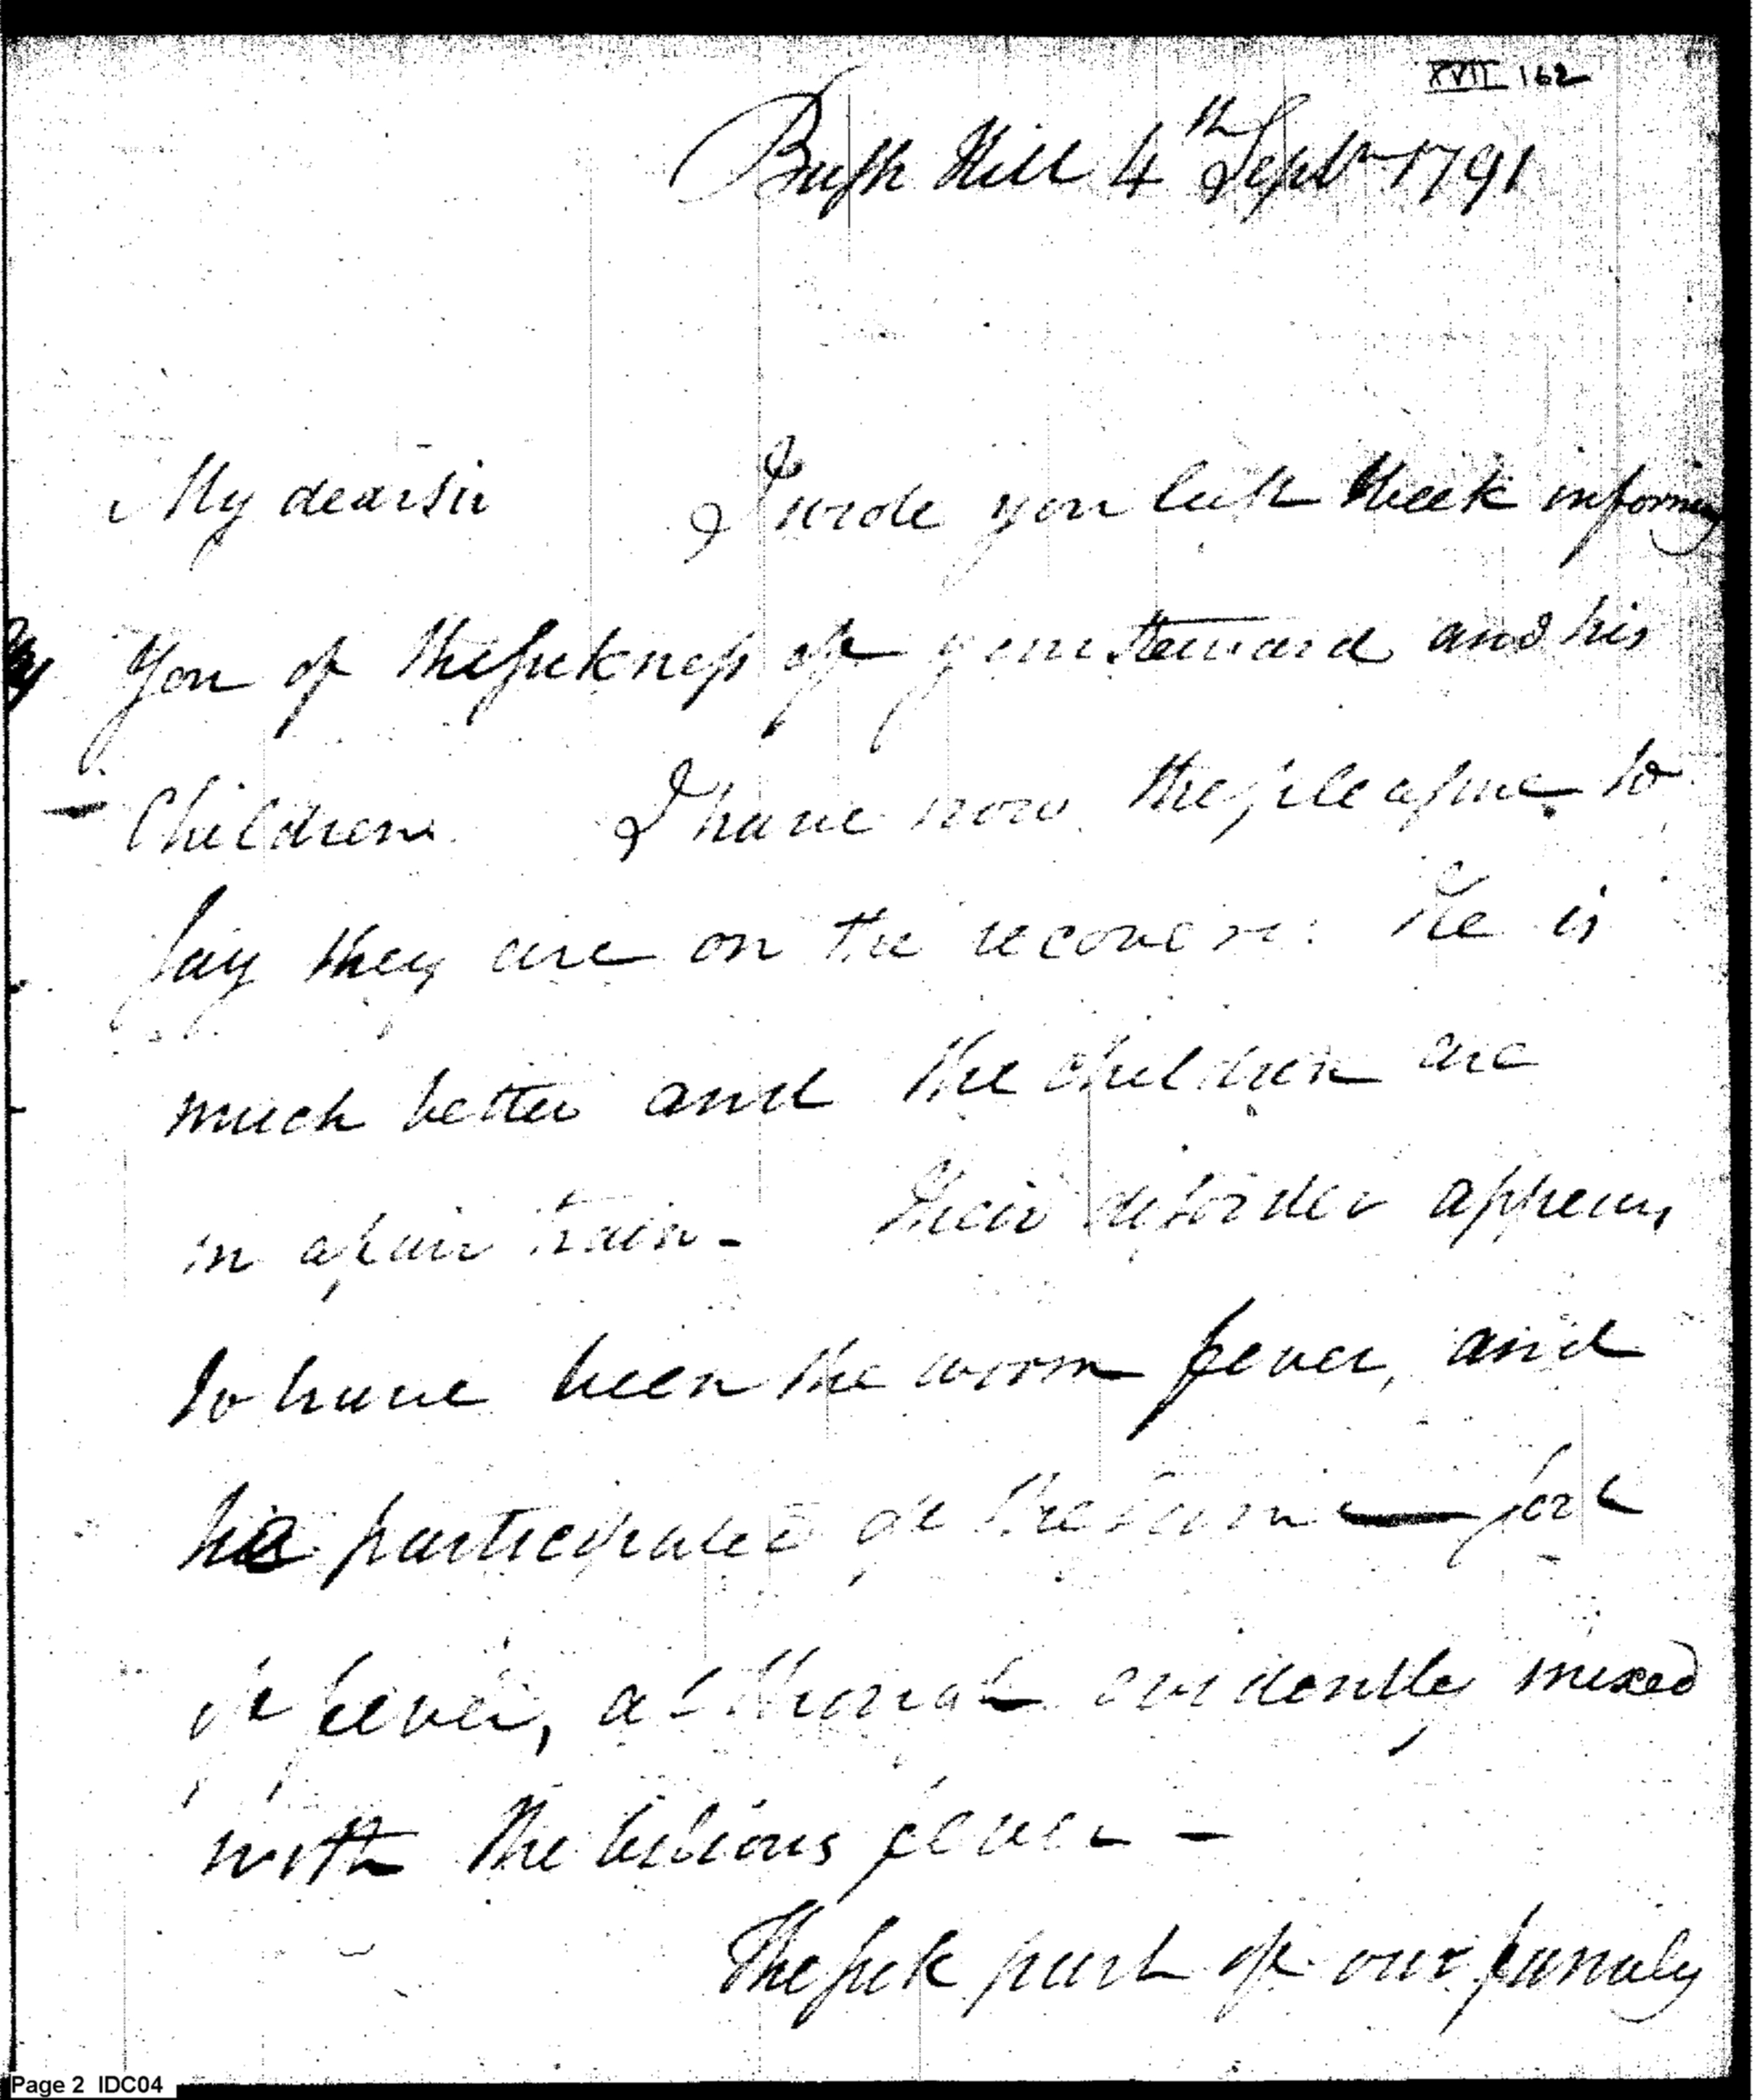 XVII 162
Bush Hill 4th Septr 1791
My dear sir I wrote you last Week informing
You of the sickness of your steward and his
Children I have now the pleasure to
say they are on the recovery: He is
much better and the children are
in a fair train - Their disorder appears
to have been the worm fever, and
his participated of the same
of fever, although evidently mixed
with the bilious fever -
The sick part of our family
Page 2 IDC04